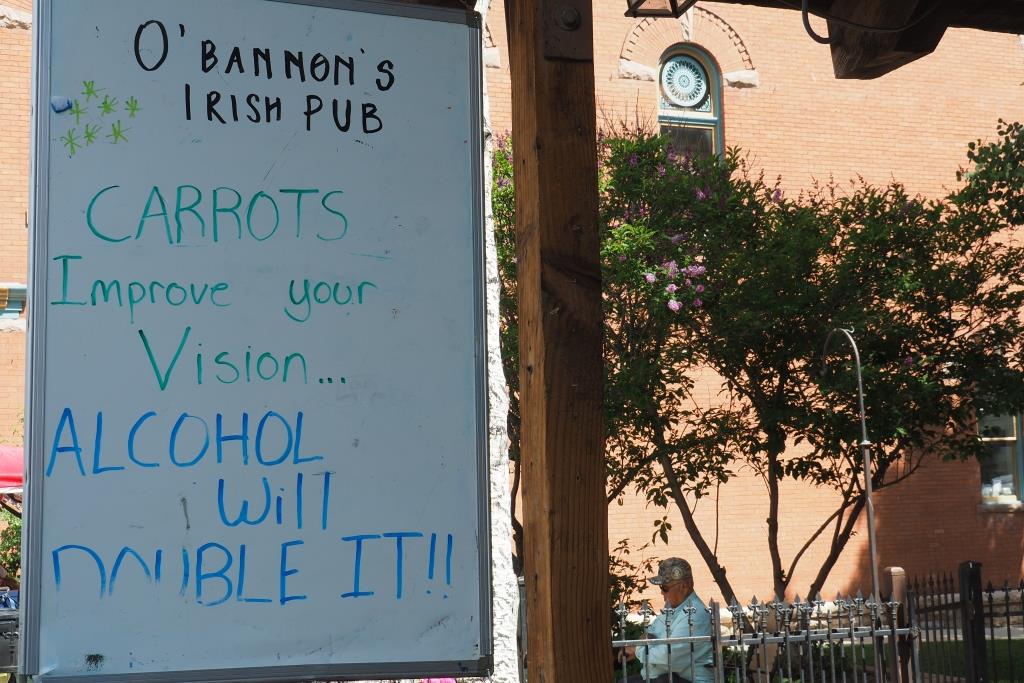 O'BANNON'S
IRISH PUB
CARROTS
Improve your
Vision...
ALCOHOL
Will
DOUBLE IT!!